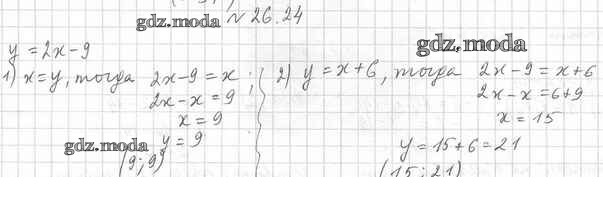 gdz.moda № 26.24
y = 2x - 9
gdz.moda
1) x = y, тогда 2x - 9 = x;
2x - x = 9
x = 9
y = 9
gdz.moda
(9; 9)
2) y = x + 6, тогда 2x - 9 = x + 6
2x - x = 6 + 9
x = 15
y = 15 + 6 = 21
(15; 21)